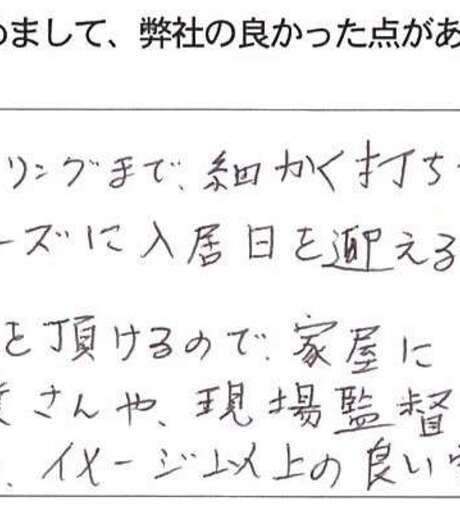 めまして、弊社の良かった点があ
リングまで、細かく打ち
ーズに入居日を迎える
を頂けるので、家屋に
さんや、現場監督
、イメージ以上の良い